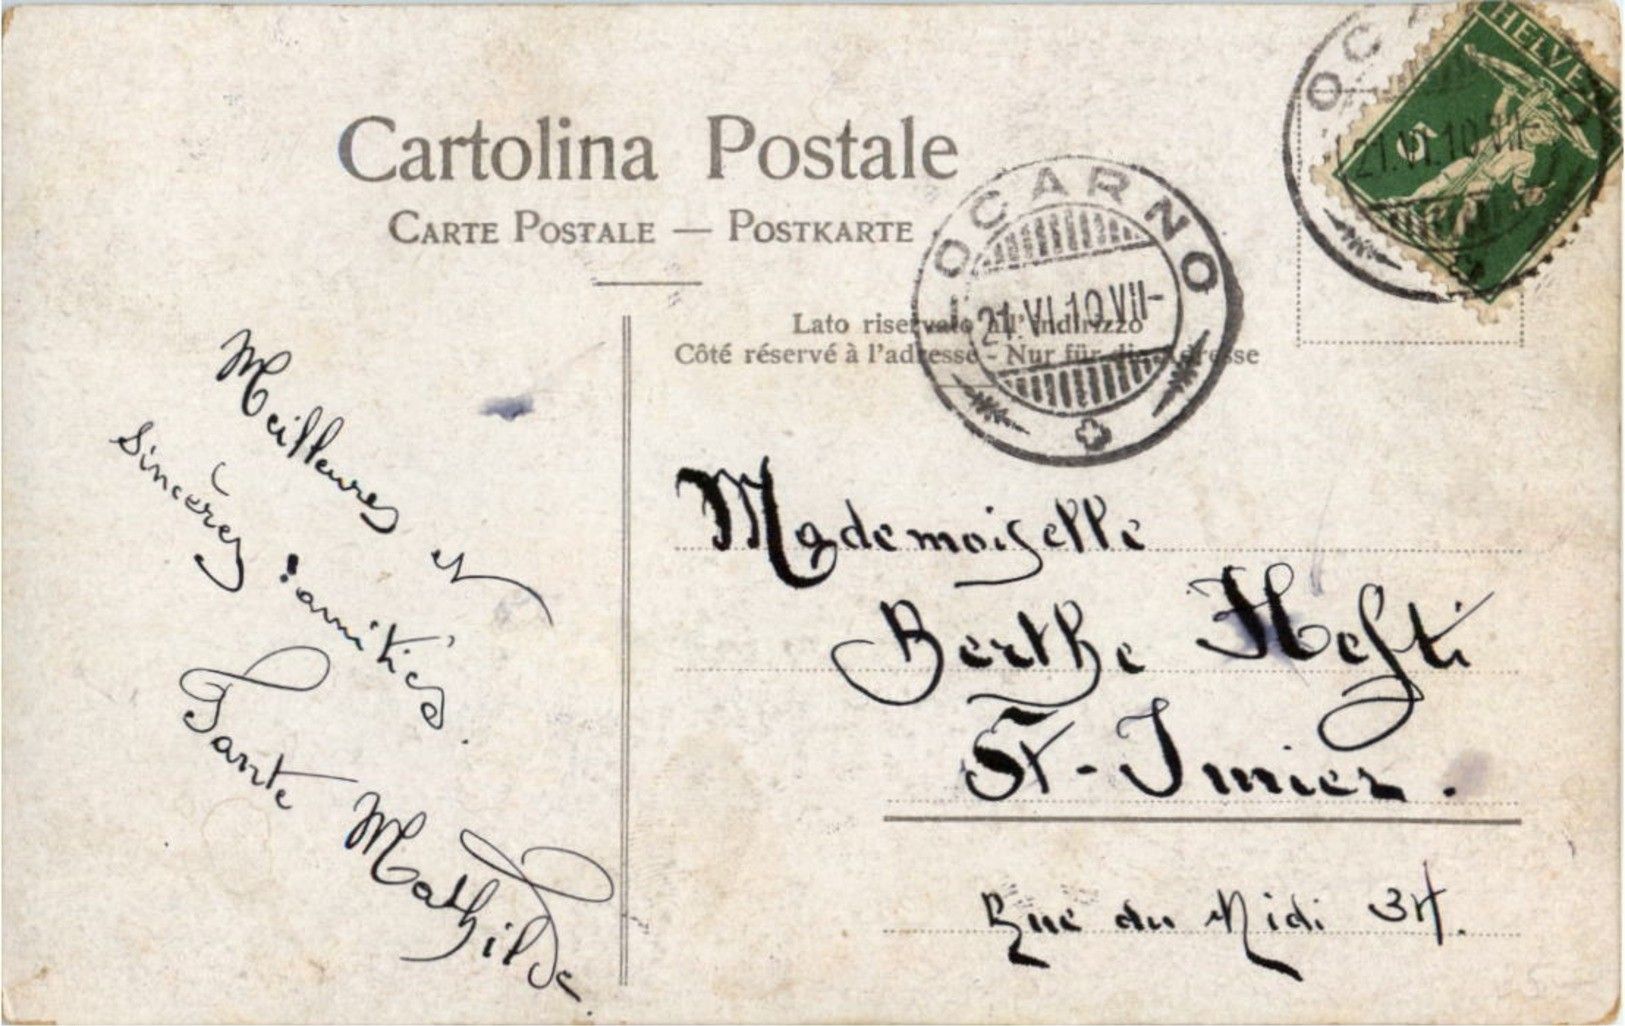 Cartolina Postale
CARTE POSTALE — POSTKARTE
HELVETIA
5
LOCARNO
21.VI.10 VII-
LOCARNO
21.VI.10 VII-
Lato riservato all'indirizzo
Côté réservé à l'adresse - Nur für die Adresse
Meilleures et
sincères amitiés.
Tante Mathilde.
Mademoiselle
Berthe Hefti
St-Imier.
Rue du Midi 34.